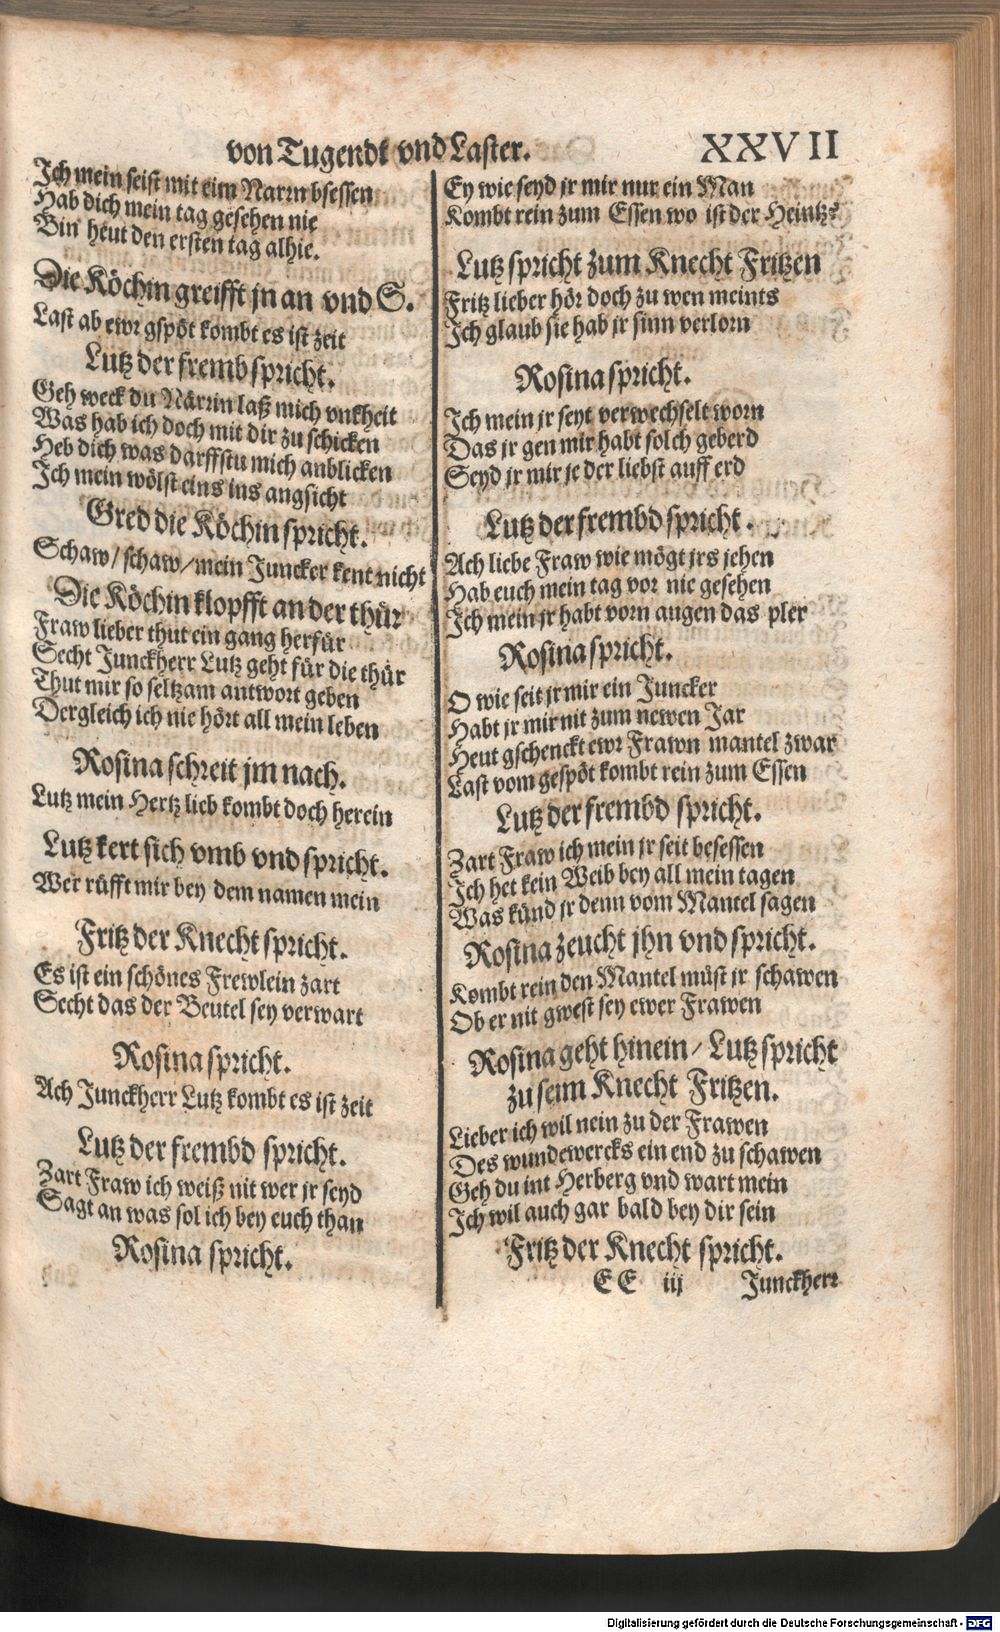 von Tugendt vnd Laster. XXVII
Ich mein seist mit eim Narrn bsessen
Hab dich mein tag gesehen nie
Bin heut den ersten tag alhie.
Die Köchin greifft jn an vnd S.
Last ab ewr gspöt kombt es ist zeit
Lutz der fremb spricht.
Geh weck du Närrin laß mich vnkheit
Was hab ich doch mit dir zu schicken
Heb dich was darffstu mich anblicken
Ich mein wölst eins ins angsicht
Gred die Köchin spricht.
Schaw/ schaw/ mein Juncker kent nicht
Die Köchin klopfft an der thür
Fraw lieber thut ein gang herfür
Secht Junckherr Lutz geht für die thür
Thut mir so seltzam antwort geben
Dergleich ich nie hört all mein leben
Rosina schreit jm nach.
Lutz mein Hertz lieb kombt doch herein
Lutz kert sich vmb vnd spricht.
Wer rüfft mir bey dem namen mein
Fritz der Knecht spricht.
Es ist ein schönes Frewlein zart
Secht das der Beutel sey verwart
Rosina spricht.
Ach Junckherr Lutz kombt es ist zeit
Lutz der frembd spricht.
Zart Fraw ich weiß nit wer jr seyd
Sagt an was sol ich bey euch than
Rosina spricht.
Ey wie seyd jr mir nur ein Man
Kombt rein zum Essen wo ist der Heintz?
Lutz spricht zum Knecht Fritzen
Fritz lieber hör doch zu wen meints
Ich glaub sie hab jr sinn verlorn
Rosina spricht.
Ich mein jr seyt verwechselt worn
Das jr gen mir habt solch geberd
Seyd jr mir je der liebst auff erd
Lutz der frembd spricht.
Ach liebe Fraw wie mögt jrs jehen
Hab euch mein tag vor nie gesehen
Ich mein jr habt vorn augen das pler
Rosina spricht.
O wie seit jr mir ein Juncker
Habt jr mir nit zum newen Jar
Heut gschenckt ewr Frawn mantel zwar
Last vom gespöt kombt rein zum Essen
Lutz der frembd spricht.
Zart Fraw ich mein jr seit besessen
Ich het kein Weib bey all mein tagen
Was künd jr denn vom Mantel sagen
Rosina zeucht jhn vnd spricht.
Kombt rein den Mantel müst jr schawen
Ob er nit gwest sey ewer Frawen
Rosina geht hinein/ Lutz spricht
zu seim Knecht Fritzen.
Lieber ich wil nein zu der Frawen
Des wundewercks ein end zu schawen
Geh du int Herberg vnd wart mein
Ich wil auch gar bald bey dir sein
Fritz der Knecht spricht.
EE iij Junckherr
Digitalisierung gefördert durch die Deutsche Forschungsgemeinschaft - DFG